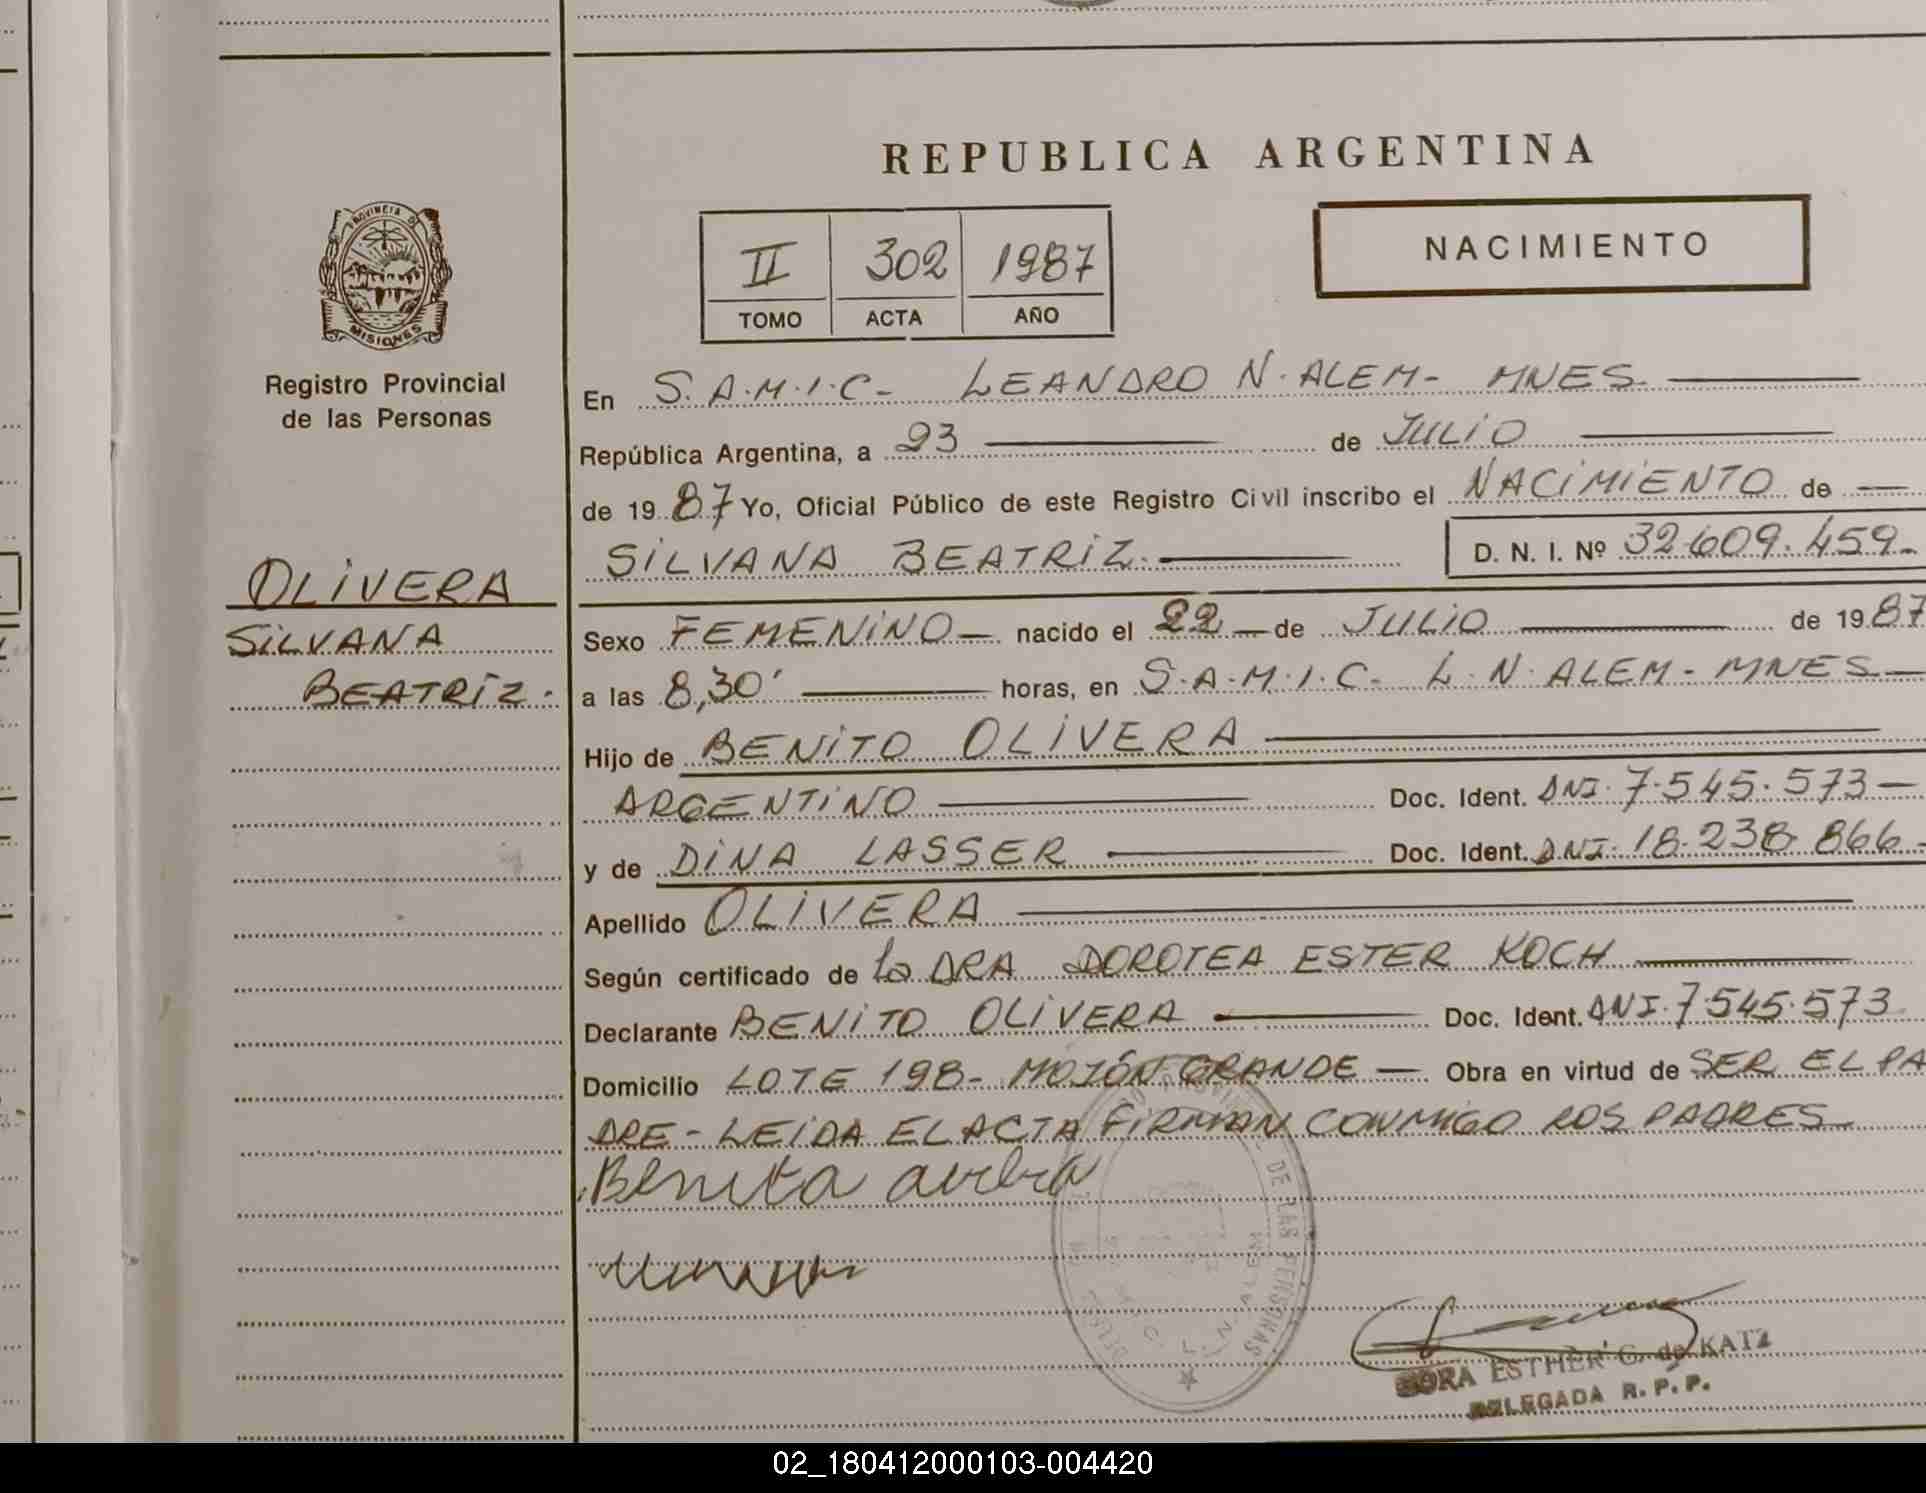 REPUBLICA ARGENTINA
PROVINCIA DE
MISIONES
Registro Provincial
de las Personas
II 302 1987
TOMO ACTA AÑO
NACIMIENTO
En S.A.M.I.C- LEANDRO N. ALEM- MNES
República Argentina, a 23 de JULIO
de 19 87 Yo, Oficial Público de este Registro Civil inscribo el NACIMIENTO de
SILVANA BEATRIZ. D. N. I. Nº 32.609.459-
OLIVERA
SILVANA
BEATRIZ.
Sexo FEMENINO- nacido el 22 de JULIO de 19 87
a las 8,30' horas, en S.A.M.I.C- L.N. ALEM- MNES
Hijo de BENITO OLIVERA
ARGENTINO Doc. Ident. DNI. 7.545.573-
y de DINA LASSER Doc. Ident. DNI. 18.238.866-
Apellido OLIVERA
Según certificado de la DRA DOROTEA ESTER KOCH
Declarante BENITO OLIVERA Doc. Ident. DNI. 7.545.573
Domicilio LOTE 198- MOJÓN GRANDE - Obra en virtud de SER EL PA
DRE- LEIDA EL ACTA FIRMAN CONMIGO LOS PADRES
DE LAS PERSONAS
L. N. ALEM
ESTHER G. de KATZ
DELEGADA R. P. P.
02_180412000103-004420